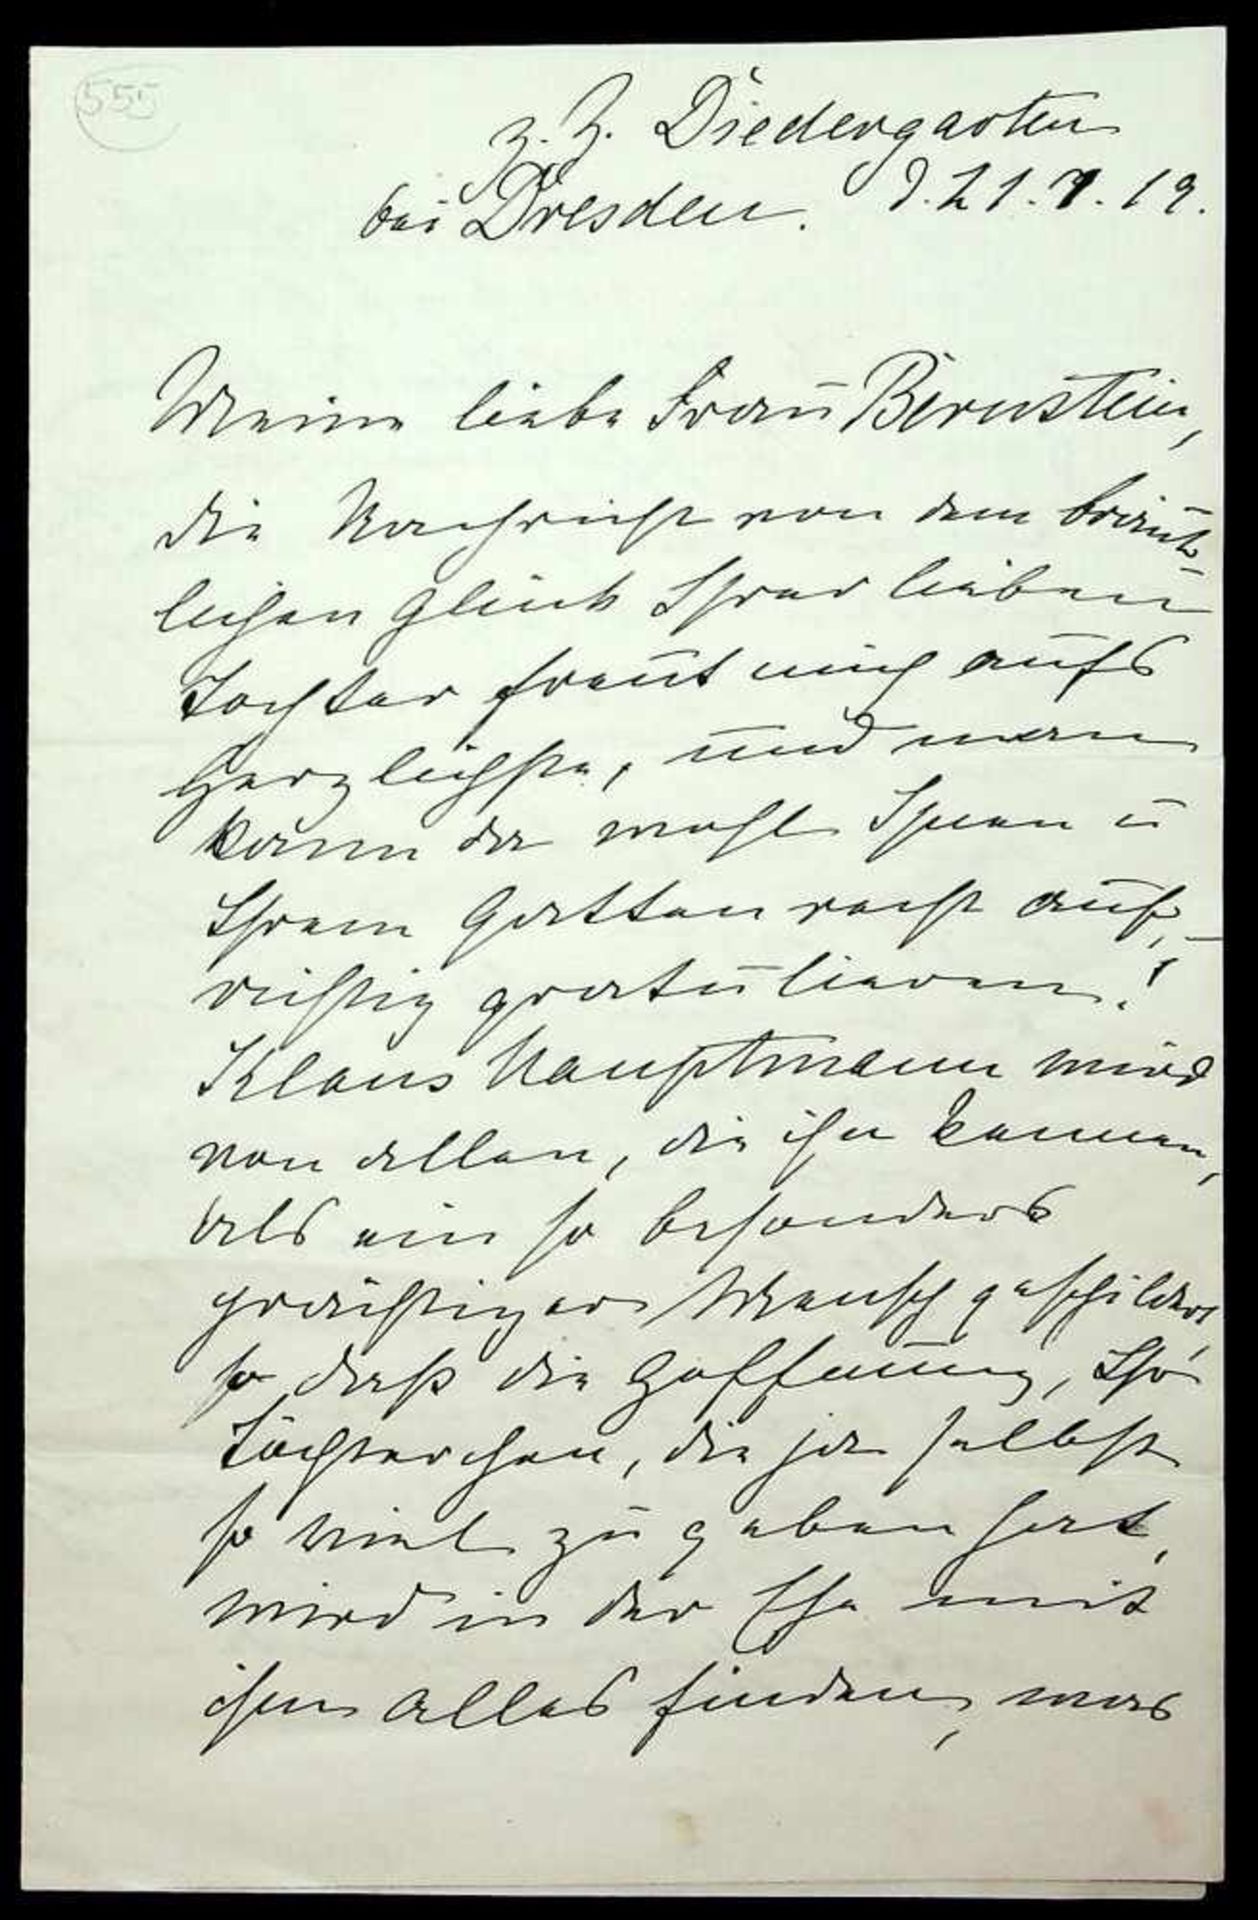 555
z. Z. Niedergarten
bei Dresden. d. 21. 7. 19.
Meine liebe Frau Bernstein,
die Nachricht von dem bräut-
lichen Glück Ihrer lieben
Tochter freut mich aufs
Herzlichste, und man
kann da wohl Ihnen u
Ihrem Gatten recht auf-
richtig gratulieren!
Klaus Hauptmann wird
von allen, die ihn kennen,
als ein so besonders
prächtiger Mensch geschildert,
so daß die Hoffnung, Ihr
Töchterchen, die ja selbst
so viel zu geben hat,
wird in der Ehe mit
ihm alles finden, was